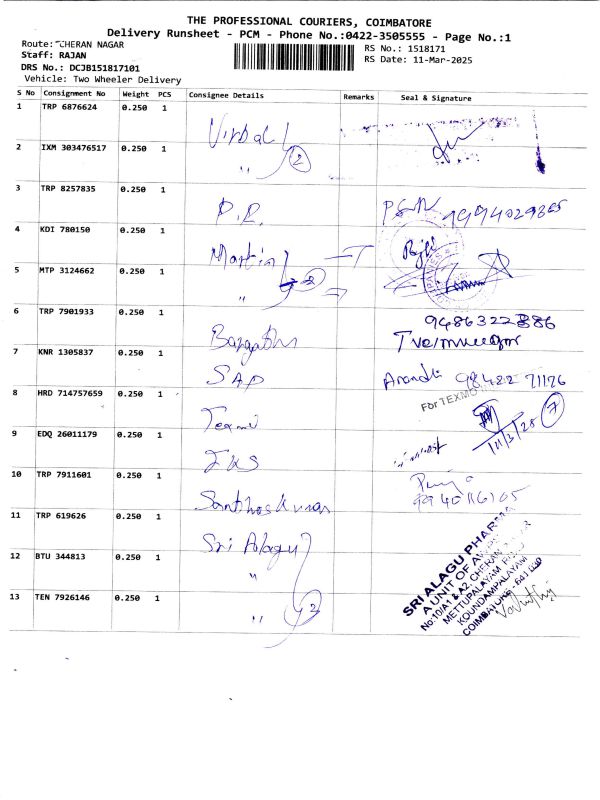 THE PROFESSIONAL COURIERS, COIMBATORE
Delivery Runsheet - PCM - Phone No.:0422-3505555 - Page No.:1
Route: CHERAN NAGAR
RS No.: 1518171
Staff: RAJAN
RS Date: 11-Mar-2025
DRS No.: DCJB151817101
Vehicle: Two Wheeler Delivery
S No Consignment No Weight PCS Consignee Details Remarks Seal & Signature
1 TRP 6876624 0.250 1 Virbal
2 IXM 303476517 0.250 1 " 2
3 TRP 8257835 0.250 1 P.R.
4 KDI 780150 0.250 1 Martin
5 MTP 3124662 0.250 1 " 2
6 TRP 7901933 0.250 1
7 KNR 1305837 0.250 1 SAP
8 HRD 714757659 0.250 1 For TEXMO 7
9 EDQ 26011179 0.250 1
10 TRP 7911601 0.250 1 Santhoskumar
11 TRP 619626 0.250 1 Sri Alagu
12 BTU 344813 0.250 1 "
13 TEN 7926146 0.250 1 " 3
SRI ALAGU PHARMA
A UNIT OF
No:10/A1 & A2, CHERAN
METTUPALAYAM
KOUNDAMPALAYAM
COIMBATORE - 641 030